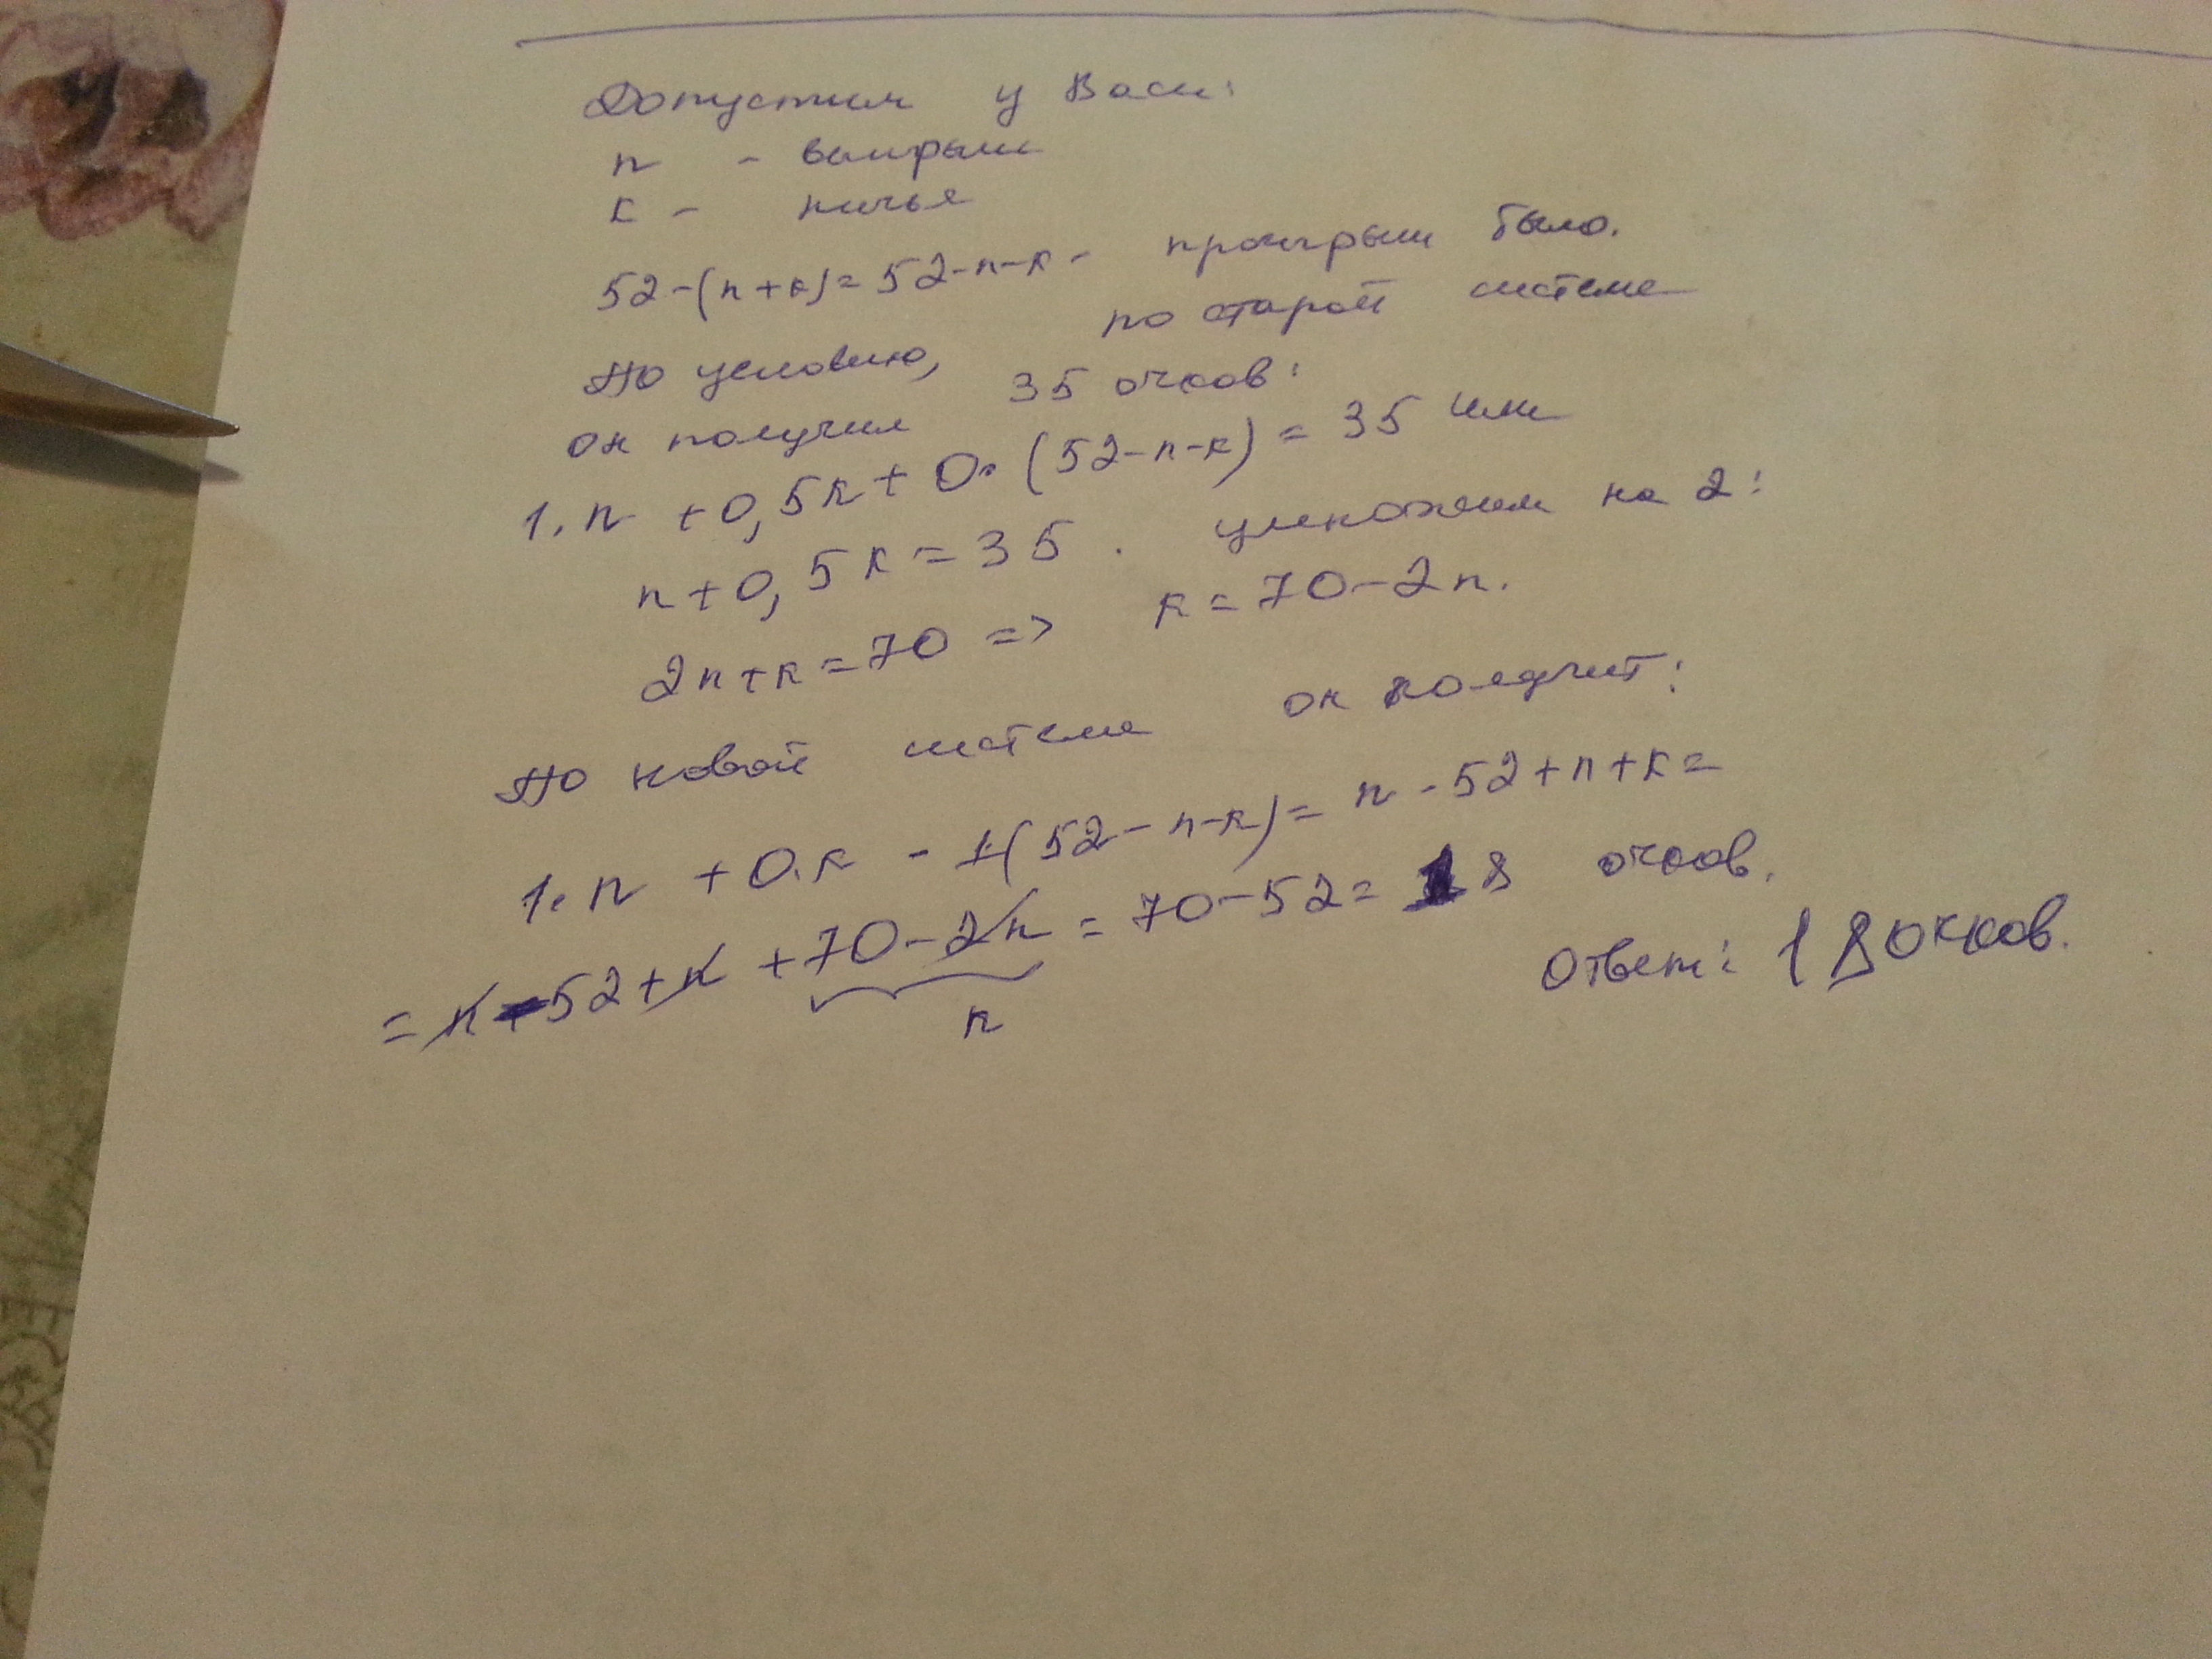 Допустим у Васи:
n - выигрыш
к - ничья
52-(n+к)=52-n-к- проигрыш было.
По условию, по старой системе
он получил 35 очков:
1·n +0,5к+0·(52-n-к)=35 или
n+0,5к=35. умножим на 2:
2n+к=70 => к=70-2n.
По новой системе он получит:
1·n +0·к -1(52-n-к)= n-52+n+к=
=n-52+n+70-2n=70-52=18 очков.
к
Ответ: 18 очков.